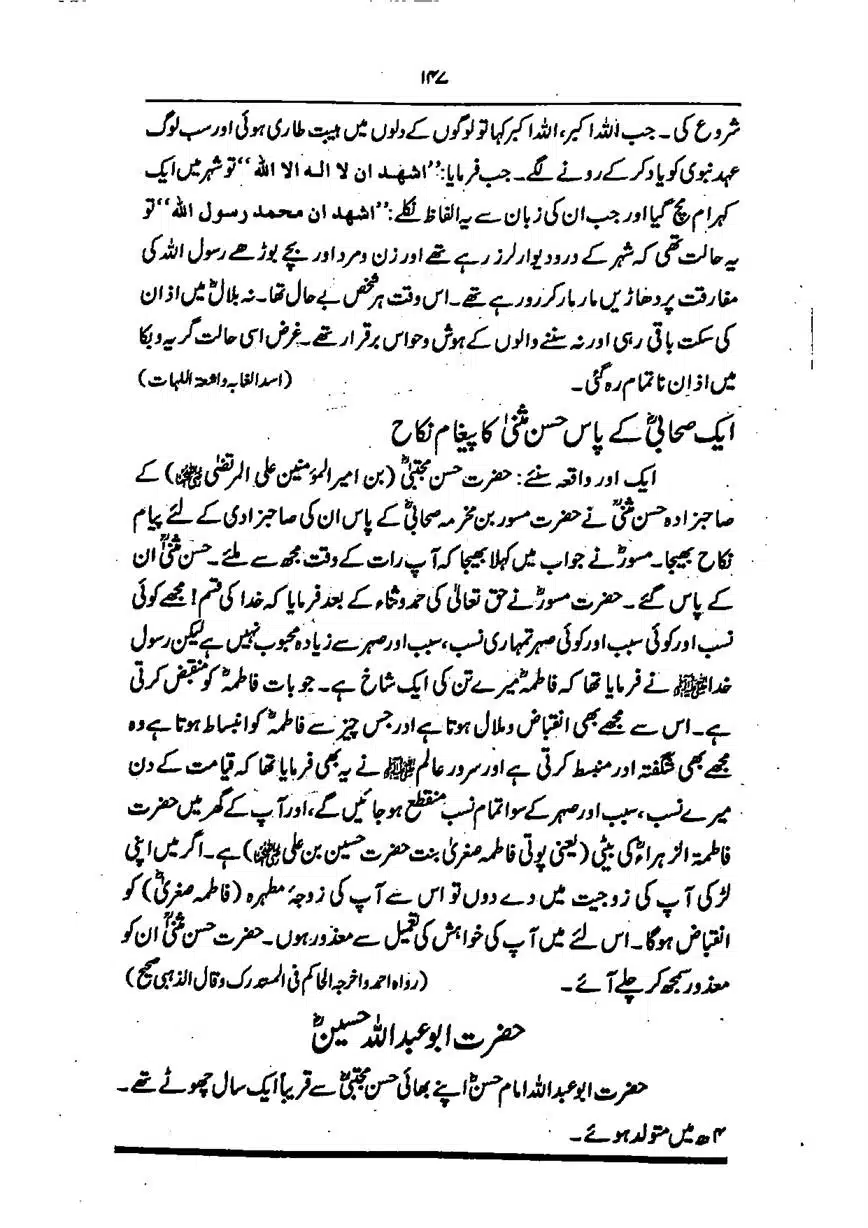 ۱۴۷
شروع کی۔ جب اللہ اکبر، اللہ اکبر کہا تو لوگوں کے دلوں میں ہیبت طاری ہوئی اور سب لوگ
عہد نبوی کو یاد کر کے رونے لگے۔ جب فرمایا: ’’اشھد ان لا الہ الا اللہ‘‘ تو شہر میں ایک
کہرام مچ گیا اور جب ان کی زبان سے یہ الفاظ نکلے: ’’اشھد ان محمد رسول اللہ‘‘ تو
یہ حالت تھی کہ شہر کے درودیوار لرز رہے تھے اور زن و مرد اور بچے بوڑھے رسول اللہ کی
مفارقت پر دھاڑیں مار مار کر رو رہے تھے۔ اس وقت ہر شخص بے حال تھا۔ نہ بلالؓ میں اذان
کی سکت باقی رہی اور نہ سننے والوں کے ہوش و حواس برقرار تھے۔ غرض اسی حالت گریہ و بکا
میں اذان ناتمام رہ گئی۔ (اسد الغابہ واقعۃ اللہات)
ایک صحابیؓ کے پاس حسن مثنیٰ کا پیغام نکاح
ایک اور واقعہ سنئے: حضرت حسن مجتبیٰؓ (بن امیر المؤمنین علی المرتضیٰ ﷺ) کے
صاحبزادہ حسن مثنیٰؒ نے حضرت مسور بن مخرمہ صحابیؓ کے پاس ان کی صاحبزادی کے لئے پیام
نکاح بھیجا۔ مسورؓ نے جواب میں کہلا بھیجا کہ آپ رات کے وقت مجھ سے ملئے۔ حسن مثنیٰؒ ان
کے پاس گئے۔ حضرت مسورؓ نے حق تعالیٰ کی حمد و ثناء کے بعد فرمایا کہ خدا کی قسم! مجھے کوئی
نسب اور کوئی سبب اور کوئی صہر تمہاری نسب، سبب اور صہر سے زیادہ محبوب نہیں ہے لیکن رسول
خدا ﷺ نے فرمایا تھا کہ فاطمہؓ میرے تن کی ایک شاخ ہے۔ جو بات فاطمہؓ کو منقبض کرتی
ہے۔ اس سے مجھے بھی انقباض و ملال ہوتا ہے اور جس چیز سے فاطمہؓ کو انبساط ہوتا ہے وہ
مجھے بھی شگفتہ اور منبسط کرتی ہے اور سرور عالم ﷺ نے یہ بھی فرمایا تھا کہ قیامت کے دن
میرے نسب، سبب اور صہر کے سوا تمام نسب منقطع ہو جائیں گے، اور آپ کے گھر میں حضرت
فاطمۃ الزہراءؓ کی بیٹی (یعنی پوتی فاطمہ صغریٰ بنت حضرت حسین بن علی ﷺ) ہے۔ اگر میں اپنی
لڑکی آپ کی زوجیت میں دے دوں تو اس سے آپ کی زوجۂ مطہرہ (فاطمہ صغریٰؓ) کو
انقباض ہوگا۔ اس لئے میں آپ کی خواہش کی تعمیل سے معذور ہوں۔ حضرت حسن مثنیٰؒ ان کو
معذور سمجھ کر چلے آئے۔ (رواہ احمد واخرجہ الحاکم فی المستدرک وقال الذہبی صحیح)
حضرت ابو عبد اللہ حسینؓ
حضرت ابو عبد اللہ امام حسنؓ اپنے بھائی حسن مجتبیٰؓ سے قریباً ایک سال چھوٹے تھے۔
۴ھ میں متولد ہوئے۔